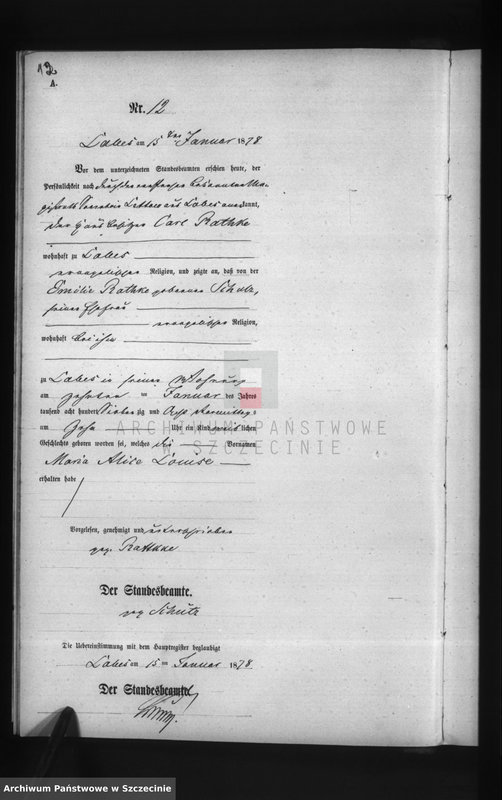 12
A.
Nr. 12
Labes am 15ten Januar 1878
Vor dem unterzeichneten Standesbeamten erschien heute, der
Persönlichkeit nach durch den
aus Labes anerkannt,
Carl Rathke
wohnhaft zu Labes
evangelischer Religion, und zeigte an, daß von der
Emilie Rathke geborenen Schulz,
seiner Ehefrau
evangelischer Religion,
wohnhaft bei ihm
zu Labes in seiner Wohnung
am zehnten ten Januar des Jahres
tausend acht hundert siebenzig und acht Vormittags
um zehn Uhr ein Kind weiblichen
Geschlechts geboren worden sei, welches die Vornamen
Maria Alice Louise
erhalten habe
Vorgelesen, genehmigt und unterschrieben
gez. Rathke
Der Standesbeamte.
gez Schulz
Die Uebereinstimmung mit dem Hauptregister beglaubigt
Labes am 15 ten Januar 1878
Der Standesbeamte
ARCHIWUM PAŃSTWOWE
W SZCZECINIE
Archiwum Państwowe w Szczecinie